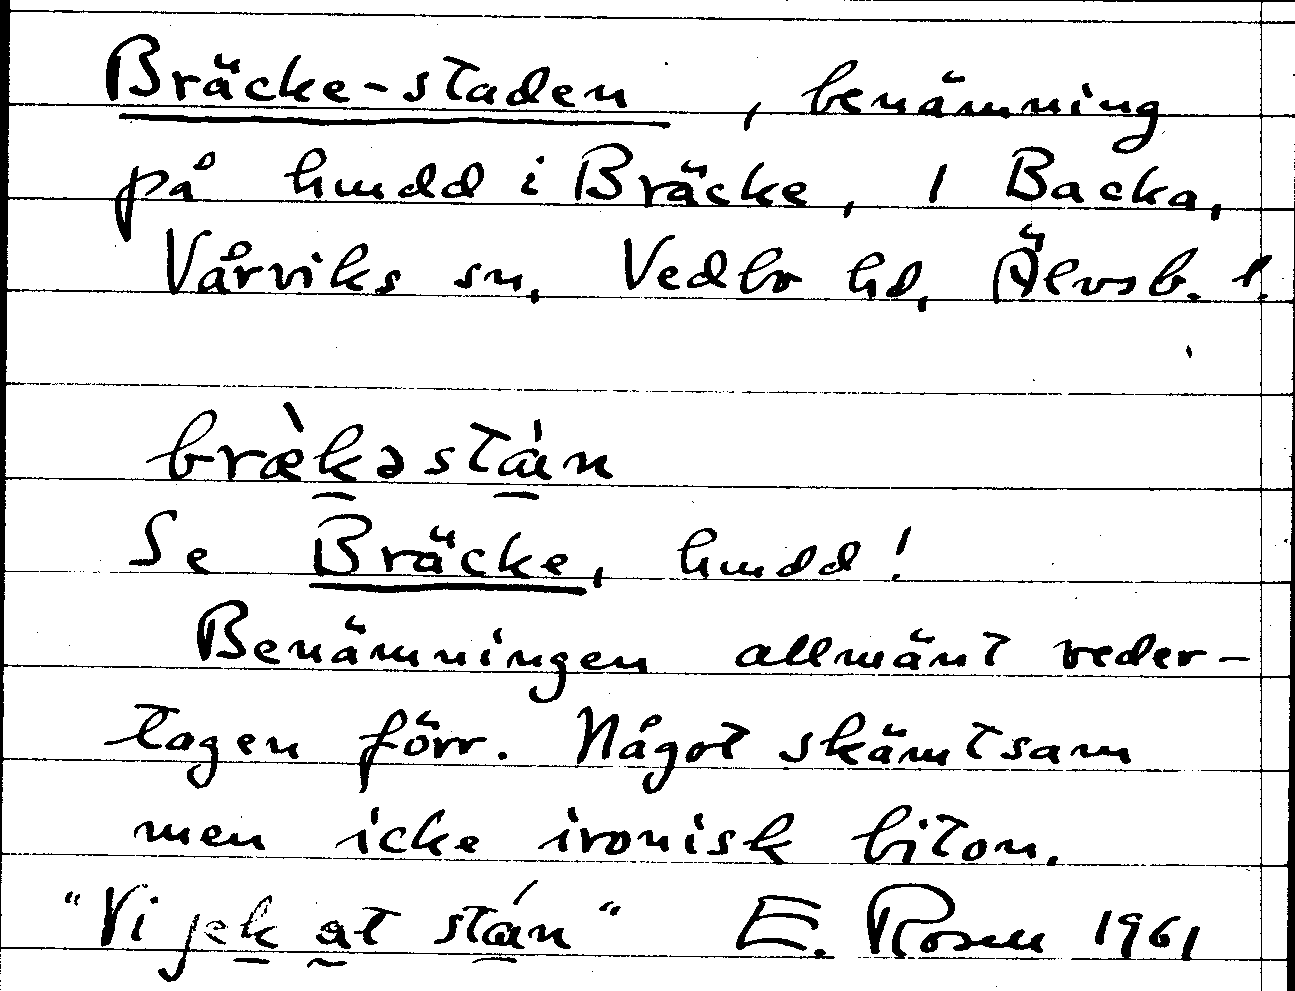 Bräcke-staden, benämning
på hmdd i Bräcke, 1 Backa,
Vårviks sn, Vedbo hd, Älvsb. l.
bræ̀kəstàn
Se Bräcke, hmdd!
Benämningen allmänt veder-
tagen förr. Något skämtsam
men icke ironisk biton.
"Vi jek at stán" E. Rosen 1961